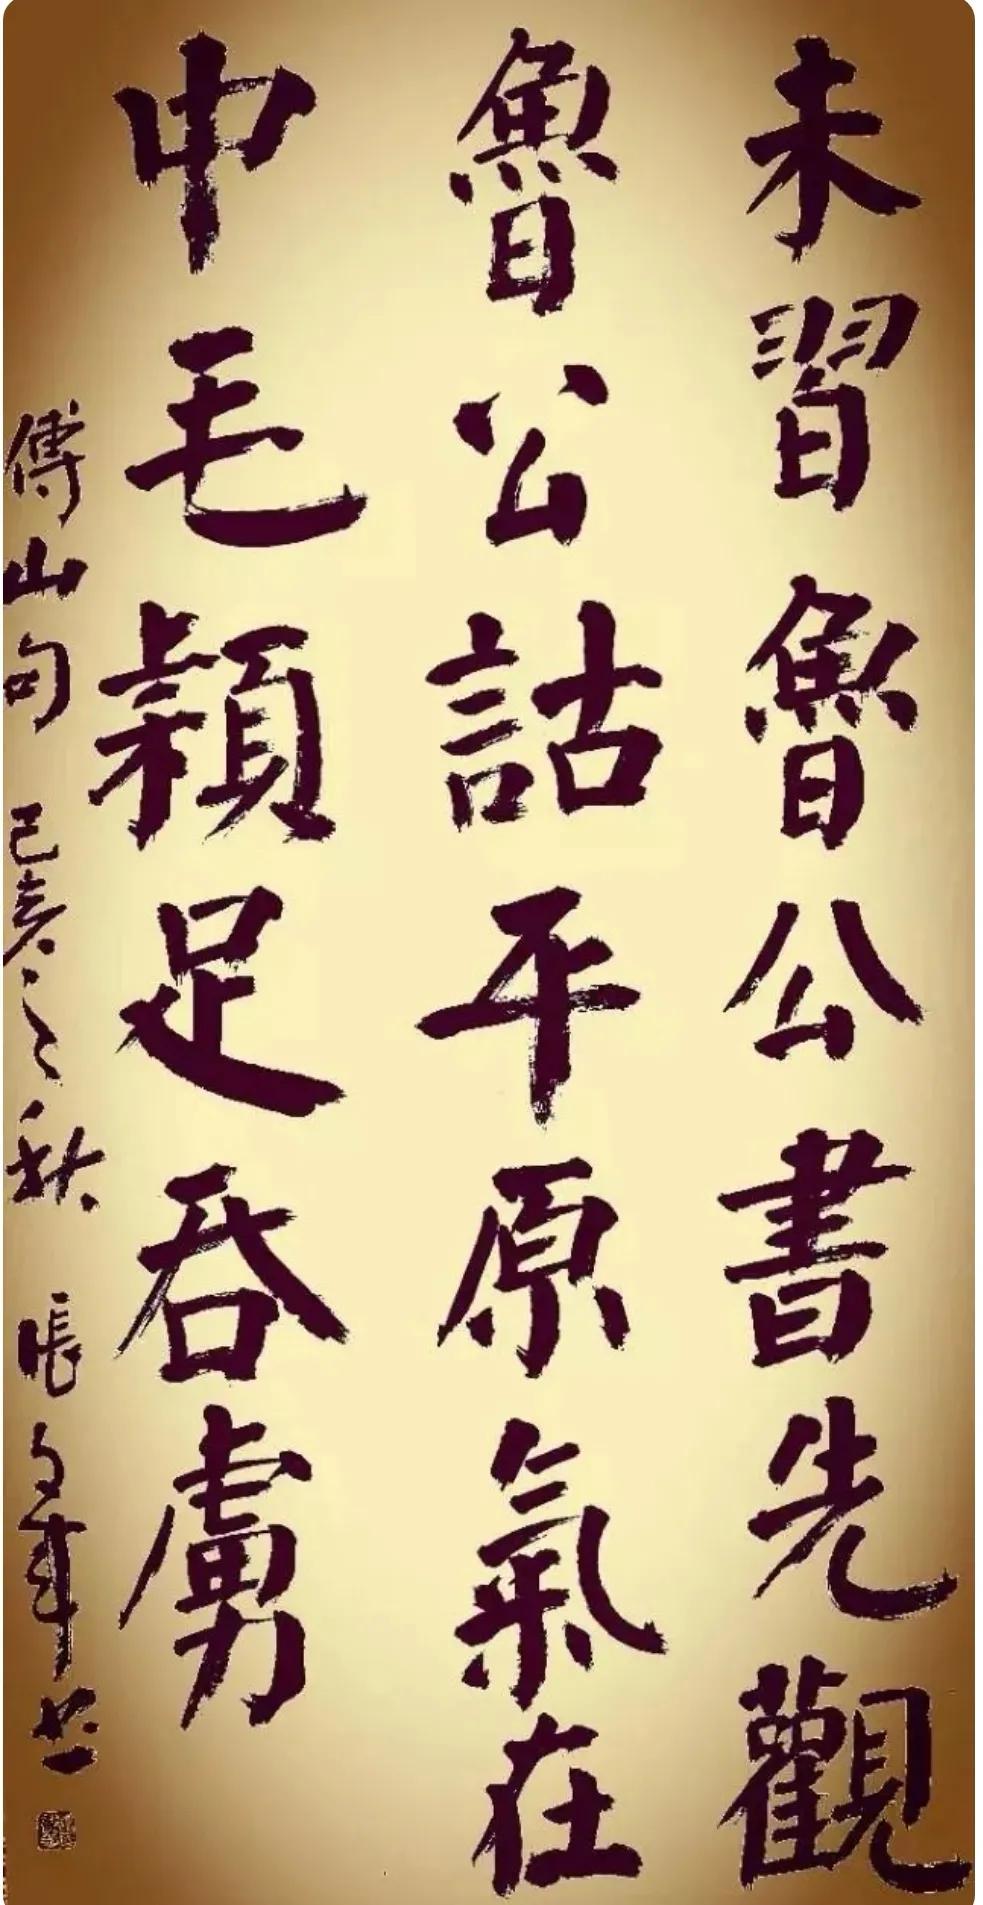 未習魯公書先觀
魯公詁平原氣在
中毛穎足吞虜
傅山句 己亥之秋 張